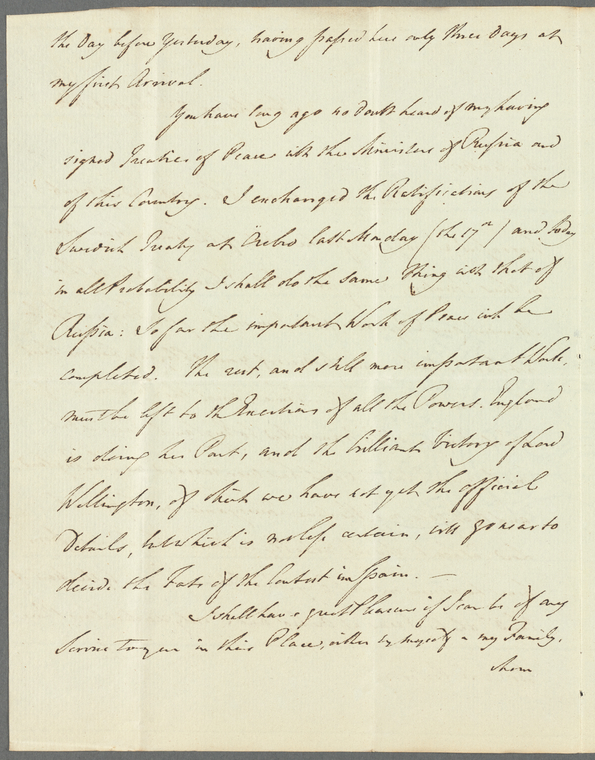 the Day before Yesterday, having passed here only three Days at
my first Arrival.
You have long ago no doubt heard of my having
signed Treaties of Peace with the Ministers of Russia and
of this Country. I exchanged the Ratifications of the
Swedish Treaty at Örebro last Monday (the 17th) and today
in all Probability I shall do the same thing with that of
Russia: So far the important Work of Peace will be
completed. The rest, and still more important Work,
must be left to the Exertions of all the Powers. England
is doing her Part, and the brilliant Victory of Lord
Wellington, of which we have not yet the official
Details, but which is not less certain, will go near to
decide the Fate of the Contest in Spain. —
I shall have great Pleasure if I can be of any
Service to you in this Place, either by myself or my Family,
whom